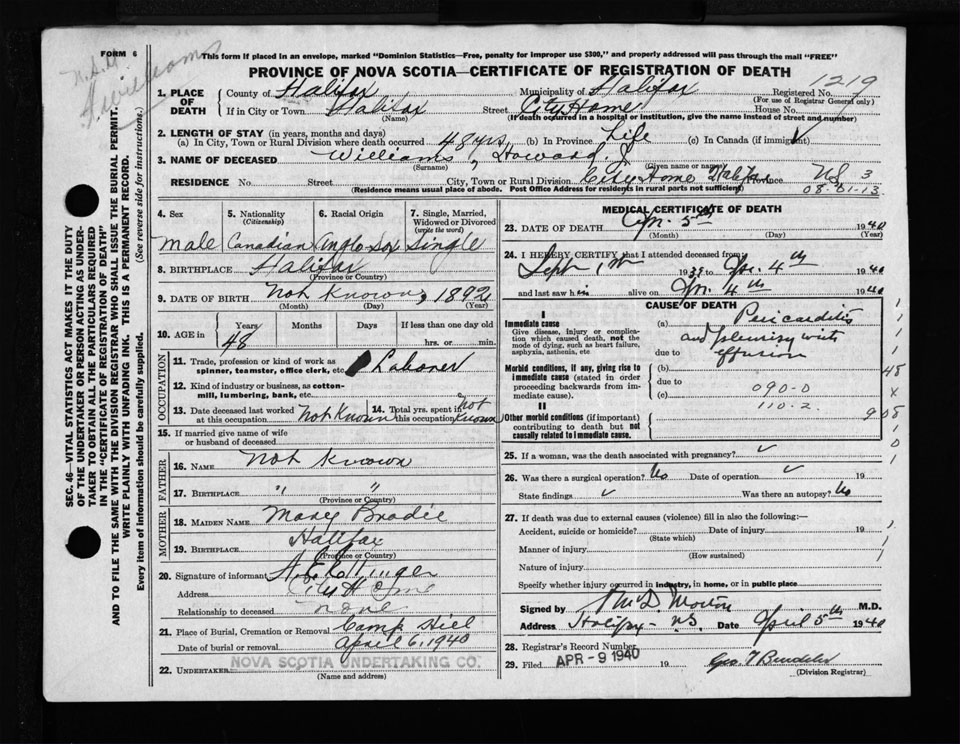 FORM 6
This form if placed in an envelope, marked "Dominion Statistics—Free, penalty for improper use $300," and properly addressed will pass through the mail "FREE"
PROVINCE OF NOVA SCOTIA—CERTIFICATE OF REGISTRATION OF DEATH
Williams
1219
1. PLACE OF DEATH
County of Halifax Municipality of Halifax Registered No.
(For use of Registrar General only)
If in City or Town Halifax Street City Home House No.
(Name) (If death occurred in a hospital or institution, give the name instead of street and number)
2. LENGTH OF STAY (in years, months and days)
(a) In City, Town or Rural Division where death occurred 48 yrs (b) In Province Life (c) In Canada (if immigrant) ✓
3. NAME OF DECEASED Williams, Howard J
(Surname) (Given name or names)
RESIDENCE No. Street City, Town or Rural Division City Home Halifax Province NS 3
(Residence means usual place of abode. Post Office Address for residents in rural parts not sufficient) 08-01-13
SEC. 46—VITAL STATISTICS ACT MAKES IT THE DUTY OF THE UNDERTAKER OR PERSON ACTING AS UNDERTAKER TO OBTAIN ALL THE PARTICULARS REQUIRED IN THE "CERTIFICATE OF REGISTRATION OF DEATH" AND TO FILE THE SAME WITH THE DIVISION REGISTRAR WHO SHALL ISSUE THE BURIAL PERMIT.
WRITE PLAINLY WITH UNFADING INK. THIS IS A PERMANENT RECORD.
Every item of information should be carefully supplied. (See reverse side for instructions.)
4. Sex 5. Nationality 6. Racial Origin 7. Single, Married,
(Citizenship) Widowed or Divorced
(write the word)
male Canadian Anglo Sax Single
8. BIRTHPLACE Halifax
(Province or Country)
9. DATE OF BIRTH Not Known, 1892
(Month) (Day) (Year)
10. AGE in Years Months Days If less than one day old
48 hrs. or min.
OCCUPATION
11. Trade, profession or kind of work as
spinner, teamster, office clerk, etc. Laborer
12. Kind of industry or business, as cotton-
mill, lumbering, bank, etc.
13. Date deceased last worked at this occupation Not Known
14. Total yrs. spent in this occupation Not Known
15. If married give name of wife
or husband of deceased
FATHER
16. NAME Not Known
17. BIRTHPLACE " "
(Province or Country)
MOTHER
18. MAIDEN NAME Mary Brodie
19. BIRTHPLACE Halifax
(Province or Country)
20. Signature of informant
Address City Home
Relationship to deceased none
21. Place of Burial, Cremation or Removal Camp Hill
Date of burial or removal April 6, 1940
22. UNDERTAKER NOVA SCOTIA UNDERTAKING CO.
(Name and address)
MEDICAL CERTIFICATE OF DEATH
23. DATE OF DEATH Ap. 5th 1940
(Month) (Day) (Year)
24. I HEREBY CERTIFY that I attended deceased from
Sept 1st 1939 to Ap. 4th 1940
and last saw him alive on Ap. 4th 1940
CAUSE OF DEATH
I
Immediate cause (a) Pericarditis
Give disease, injury or complication which caused death, not the mode of dying, such as heart failure, asphyxia, asthenia, etc
and pleurisy with
due to effusion
Morbid conditions, if any, giving rise to immediate cause (stated in order proceeding backwards from immediate cause).
(b)
due to
(c) 090-0
110-2
II
Other morbid conditions (if important) contributing to death but not causally related to immediate cause.
1
1
1
1
48
x
908
1
0
1
25. If a woman, was the death associated with pregnancy? ✓
26. Was there a surgical operation? No Date of operation ✓ 19
State findings ✓ Was there an autopsy? No
27. If death was due to external causes (violence) fill in also the following:—
Accident, suicide or homicide? Date of injury 19
(State which)
Manner of injury
(How sustained)
Nature of injury
Specify whether injury occurred in industry, in home, or in public place
Signed by Morton M.D.
Address Halifax - N.S. Date April 5th 1940
28. Registrar's Record Number
29. Filed APR - 9 1940 19
(Division Registrar)